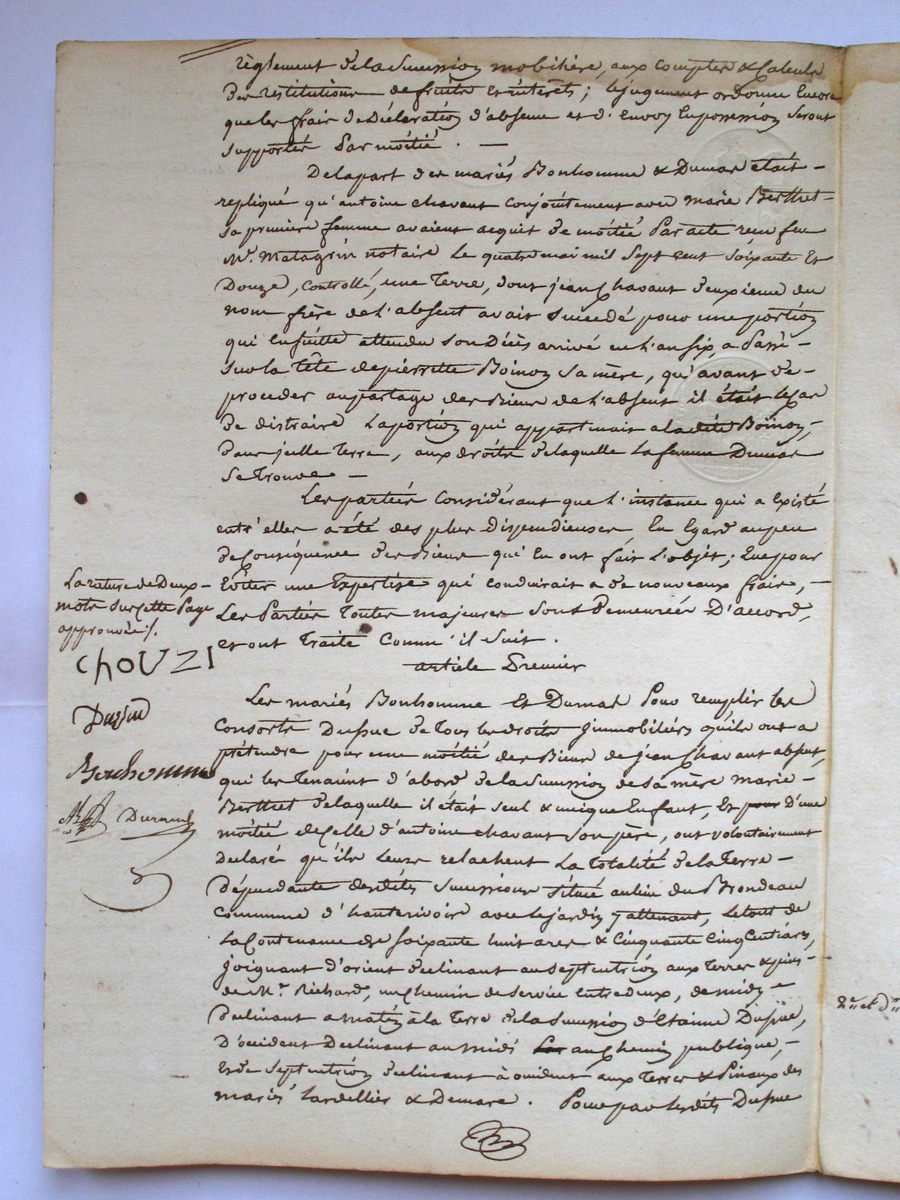 règlement de la Succession mobiliére, aux comptes & Calculs
des restitutions de fruits et intérêts ; le jugement ordonne Encore
que les frais de Déclaration d'absence et d'Envoy En possession Seront
supportés Par môitié . —
De la part des mariés Bonhomme & Dumas était -
repliqué qu'antoine chavant Conjoîntement avec marie Berthet -
sa première femme avaient acquit de môitié Par acte reçu feu
Mr. Matagrin notaire Le quatre mai mil Sept cent Soixante Et
Douze, controllé, une Terre, dont jean Chavant deuxieme du
nom frère de l'absent avait Succedé pour une portion
qui Ensuitte attendu Son Décès arrivé en l'an Six, a Passé -
sur la tête de pierrette Boinon Sa mère, qu'avant de -
proceder au partage des Biens de L'absent il était le Cas
de distraire La portion qui appartenait a la dite Boinon,
dans jcelle Terre, aux droits de laquelle la femme Dumas
Se trouve —
Les parties Considérant que l'instance qui a Existé
entr'elles a été des plus Dispendieuses En Egard au peu
de Conséquence des Biens qui En ont fait L'objet ; que pour
Eviter une Expertise qui Conduirait a de nouveaux frais, -
Les Parties Toutes majeures Sont Demeurées D'accord,
et ont Traité Comm'il Suit .
La rature de Deux -
mots sur cette Page
approuvée ./.
chOUZI
Bonhomme
Durand
article Premier
Les mariés Bonhomme Et Dumas Pour remplir les
Consorts Dupuc de Tous les droits Jmmobiliérs qu'ils ont a
prétendre pour une môitié des Biens de jean Chavant absent,
qui les Tenaint d'abord de la Succession de Sa mère marie -
Berthet de laquelle il était Seul & unique Enfant, Et pour d'une
môitié de Celle d'antoine chavant Son père, ont volontairement
declaré qu'ils Leurs relachent La Totalité de la Terre -
dépendante desdits Successions Située au lieu du Brondeau
Commune d'hauterivoire avec le jardin y attenant, Le tout de
La Contenance de Soixante huit ares & Cinquante Cinq Centiares,
joignant d'orient declinant au Septentrion aux Terres & pins -
de Mr. Richard, un Chemin de Service Entredeux, de midy -
declinant a matin à la Terre de la Succession d'Etienne Dupuc,
D'occident Declinant au Midi Les au Chemin publique, -
Et de Septentrion declinant à occident aux Terres & Pinaux des
mariés Lardellier & Demare . Pour par lesdits Dupuc
2e. et d